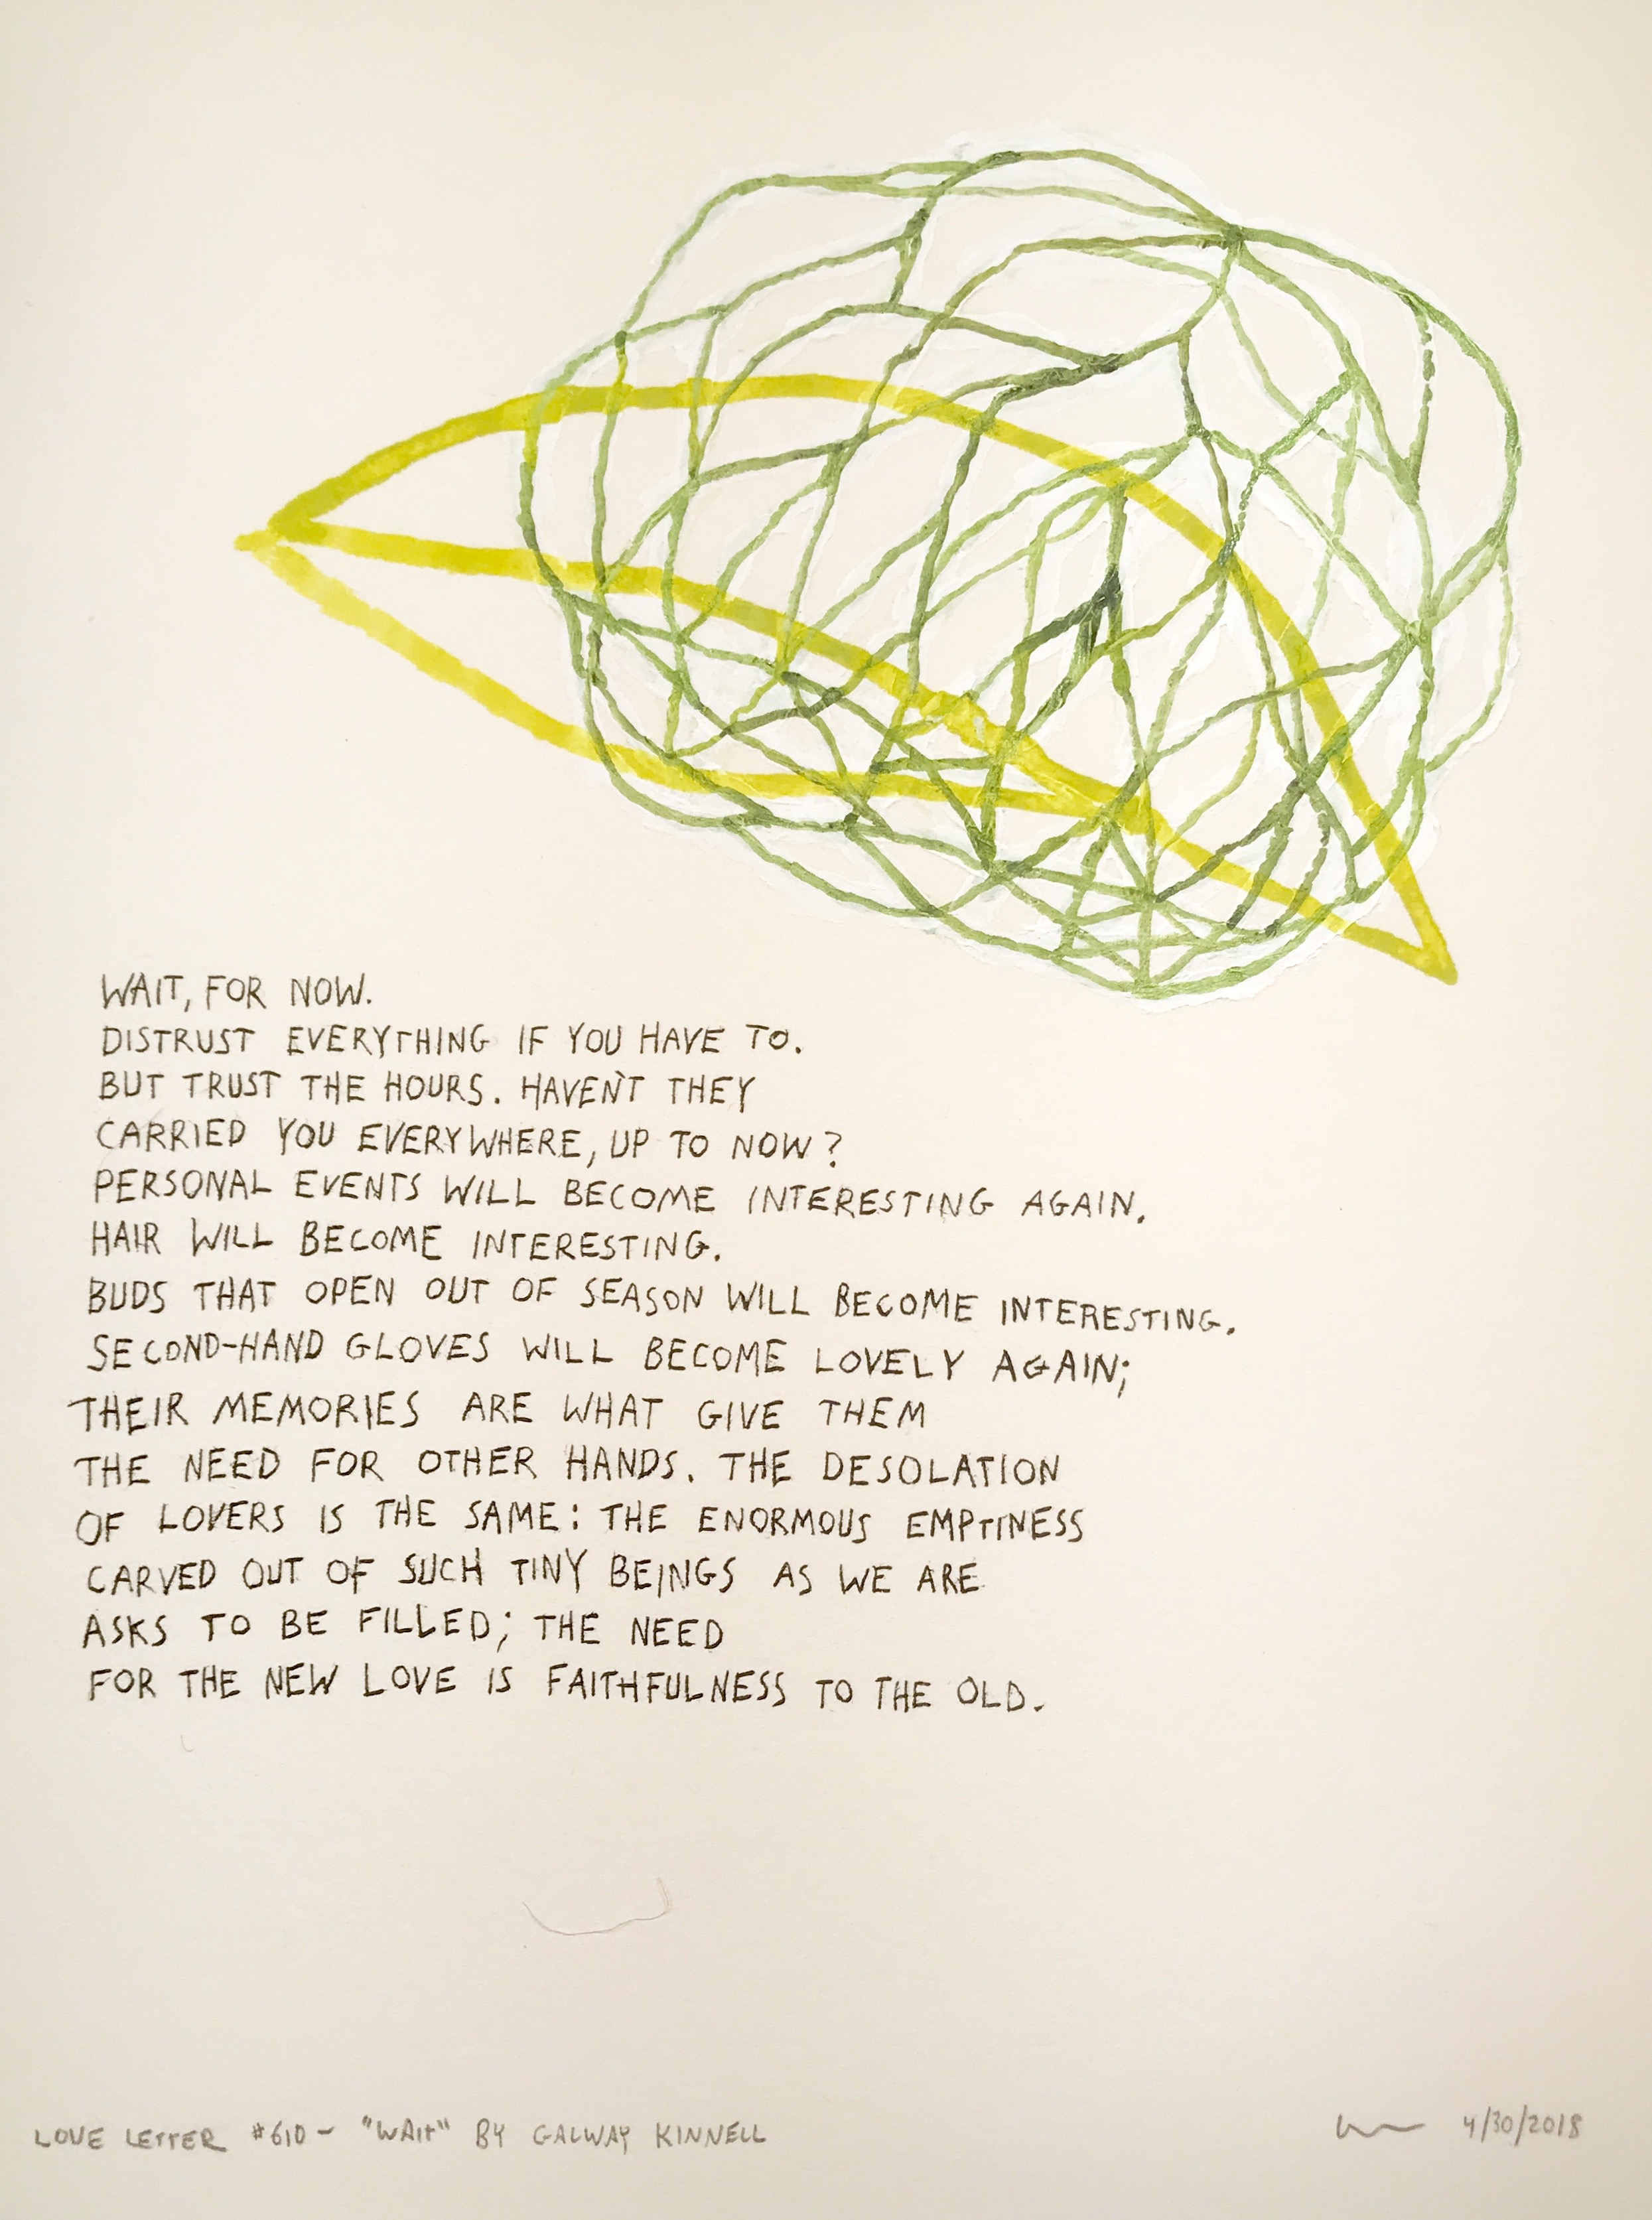 WAIT, FOR NOW.
DISTRUST EVERYTHING IF YOU HAVE TO.
BUT TRUST THE HOURS. HAVEN'T THEY
CARRIED YOU EVERYWHERE, UP TO NOW?
PERSONAL EVENTS WILL BECOME INTERESTING AGAIN.
HAIR WILL BECOME INTERESTING.
BUDS THAT OPEN OUT OF SEASON WILL BECOME INTERESTING.
SECOND-HAND GLOVES WILL BECOME LOVELY AGAIN;
THEIR MEMORIES ARE WHAT GIVE THEM
THE NEED FOR OTHER HANDS. THE DESOLATION
OF LOVERS IS THE SAME: THE ENORMOUS EMPTINESS
CARVED OUT OF SUCH TINY BEINGS AS WE ARE
ASKS TO BE FILLED; THE NEED
FOR THE NEW LOVE IS FAITHFULNESS TO THE OLD.
LOVE LETTER #610 - "WAIT" BY GALWAY KINNELL
4/30/2018